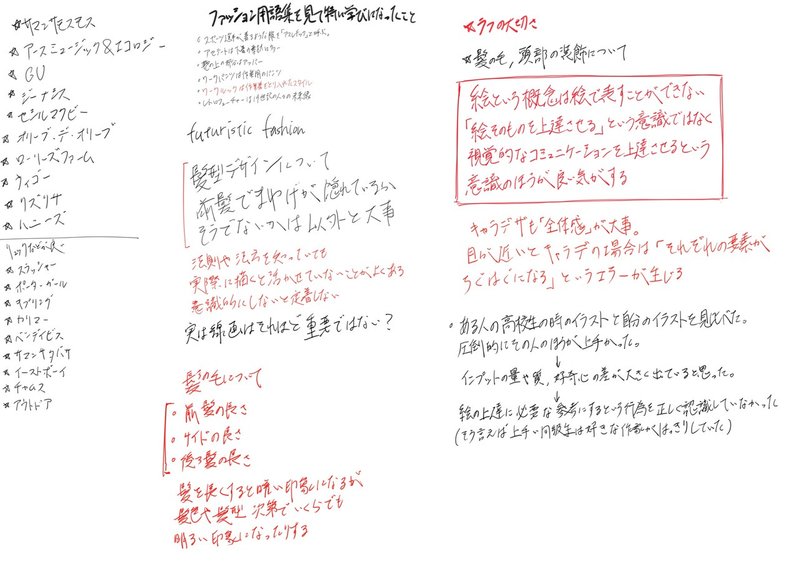 ☆サマンサモスモス
☆アースミュージック&エコロジー
☆GU
☆ジーナシス
☆セシルマクビー
☆オリーブ・デ・オリーブ
☆ローリーズファーム
☆ウィゴー
☆リズリサ
☆ハニーズ
リュックなどが良い
☆スラッシャー
☆ポーター・ガール
☆カリマー
☆サマンサタバサ
☆イーストボーイ
☆チャムス
☆アウトドア
ファッション用語集を見て特に学びになったこと
靴の上の部分はアッパー
ワークパンツは作業用のパンツ
ワークルックは作業着をとり入れたスタイル
futuristic fashion
髪型デザインについて
前髪でまゆげが隠れているか
そうでないかは以外と大事
法則や法方を知っていても
実際に描くと活かせていないことがよくある
意識的にしないと定着しない
実は線画はそれほど重要ではない?
髪の毛について
・前髪の長さ
・サイドの長さ
・後ろ髪の長さ
髪を長くすると暗い印象になるが
髪色や髪型次第でいくらでも
明るい印象になったりする
☆ラフの大切さ
☆髪の毛,頭部の装飾について
絵という概念は絵で表すことができない
「絵そのものを上達させる」という意識ではなく
視覚的なコミュニケーションを上達させるという
意識のほうが良い気がする
キャラデザも「全体感」が大事。
目が近いとキャラデの場合は「それぞれの要素が
ちぐはぐになる」というエラーが生じる
・ある人の高校生の時のイラストと自分のイラストを見比べた。
圧倒的にその人のほうが上手かった。
↓
インプットの量や質,好奇心の差が大きく出ていると思った。
↓
絵の上達に必要な参考にするという行為を正しく認識していなかった
(そう言えば上手い同級生は好きな作家がはっきりしていた)